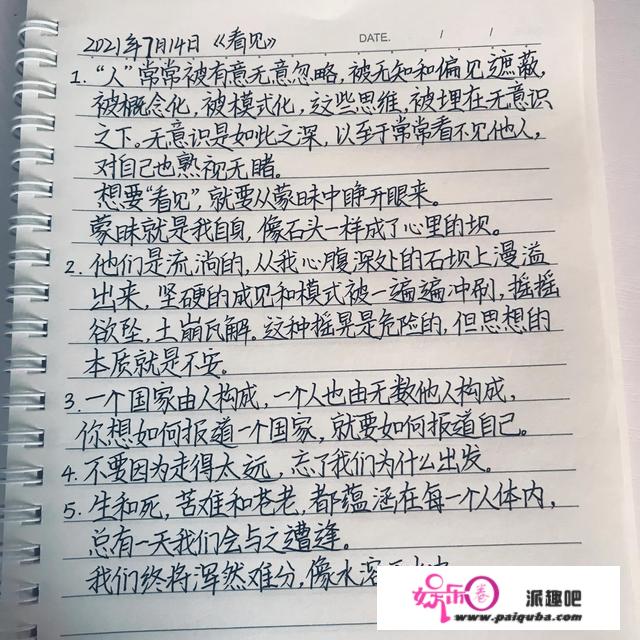 2021年7月14日《看见》
DATE. / /
1. “人”常常被有意无意忽略,被无知和偏见遮蔽,
被概念化,被模式化,这些思维,被埋在无意识
之下。无意识是如此之深,以至于常常看不见他人,
对自己也熟视无睹。
想要“看见”,就要从蒙昧中睁开眼来。
蒙昧就是我自身,像石头一样成了心里的坝。
2. 他们是流淌的,从我心腹深处的石坝上漫溢
出来,坚硬的成见和模式被一遍遍冲刷,摇摇
欲坠,土崩瓦解。这种摇晃是危险的,但思想的
本质就是不安。
3. 一个国家由人构成,一个人也由无数他人构成,
你想如何报道一个国家,就要如何报道自己。
4. 不要因为走得太远,忘了我们为什么出发。
5. 生和死,苦难和苍老,都蕴涵在每一个人体内,
总有一天我们会与之遭逢。
我们终将浑然难分,像水溶
娱乐圈 派趣吧
www.paiquba.com